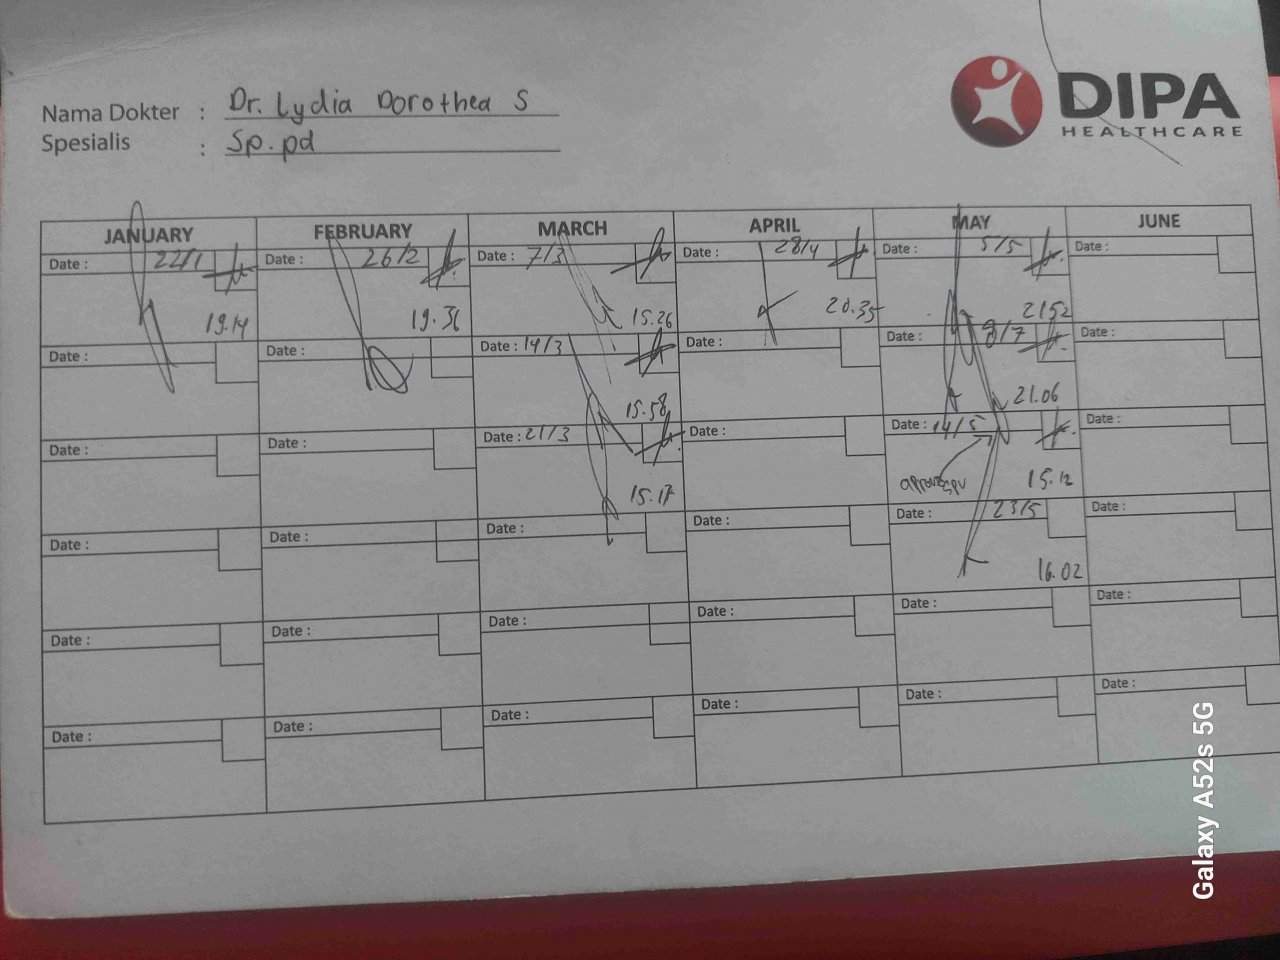 Nama Dokter : Dr. Lydia Dorothea S
Spesialis : Sp.pd
DIPA
HEALTHCARE
JANUARY FEBRUARY MARCH APRIL MAY JUNE
Date : 22/1 Date : 26/2 Date : 7/3 Date : 28/4 Date : 5/5 Date :
19.14 19.36 15.26 20.35 2152
Date : Date : Date : 14/3 Date : Date : 8/7 Date :
15.58 21.06
Date : Date : Date : 21/3 Date : Date : 14/5 Date :
15.17 15.12
Date : Date : Date : Date : Date : 23/5 Date :
16.02
Date : Date : Date : Date : Date : Date :
Date : Date : Date : Date : Date : Date :
Galaxy A52s 5G